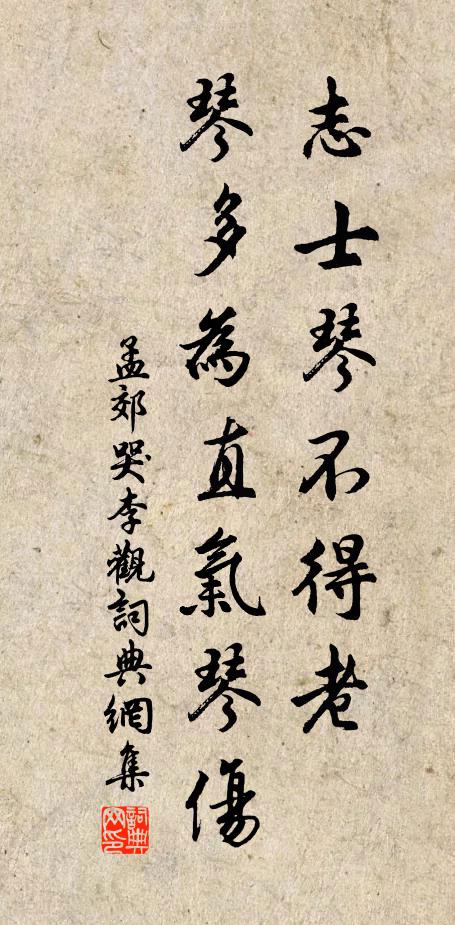 志士琴不得老
琴多為直氣琴傷
孟郊哭李觀詞典網集
詞典
网印